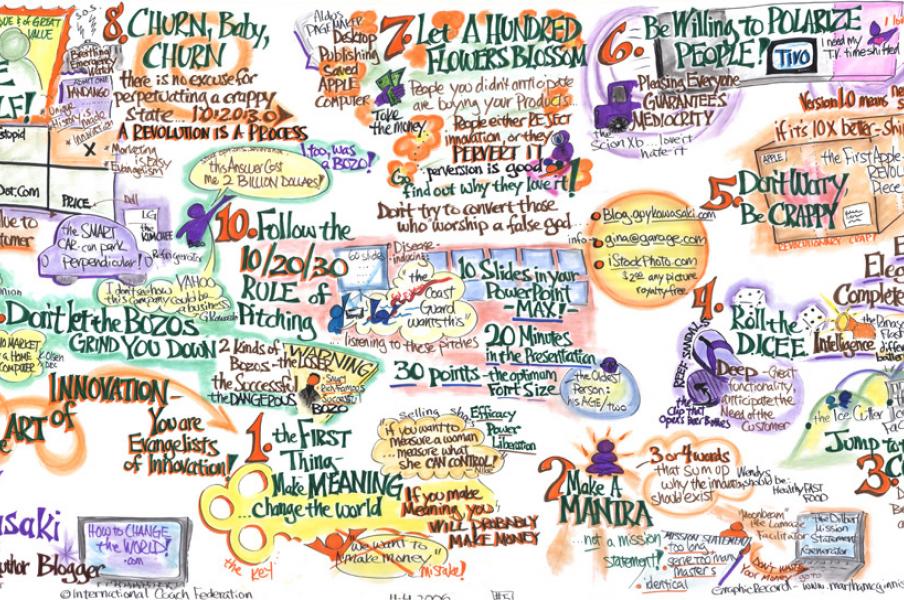 UE & of GREAT
VALUE
S.O.S.
Breathing
Emergency
Watch
ADMIT ONE
FANDANGO
LF!
• Unique
History is
made *
* Innovation
stopid
X
• Marketing
is Easy
Evangelism
Dot.com
PRICE
Dell
LG
the
KIMCHEE
Refrigerator
the SMART
CAR can park
perpendicular!
8. CHURN, Baby,
CHURN
there is no excuse for
perpetuating a crappy
state... 1.0:2.0:3.0
A REVOLUTION IS A PROCESS
I too, was
a BOZO!
this Answer Cost
me 2 BILLION DOLLARS!
Bozo
Aldo's
PAGEMAKER
Desktop
Publishing
Saved
APPLE
COMPUTER
7. Let A HUNDRED
FLOWERS BLOSSOM
People you didn't anticipate
are buying your Products...
Take
the money
People either REJECT
innovation, or they
PERVERT IT
Go perversion is good
find out why they love it!
Don't try to convert those
who worship a false god
6. Be Willing to POLARIZE
PEOPLE!
TiVo
I need my
T.V. time shifted
Pleasing Everyone
GUARANTEES
MEDIOCRITY
the
Scion Xb...love it
hate it
Version 1.0 means
if its 10X better - Ship
5. Don't Worry,
Be CRAPPY
APPLE
the First Apple
REVOL
Piece
REVOLUTIONARY CRAPP
info
• Blog.guykowasaki.com
• gina@garage.com
• iStockPhoto.com
$2.00 any picture
royalty-free
10. Follow the
10/20/30
RULE of
Pitching
60 slides
Disease-
inducing
"the
Coast
Guard
wants this"
listening to these pitches
10 Slides in your
PowerPoint
MAX!
20 Minutes
in the Presentation
30 points - the optimum
FONT SIZE
the Oldest
Person:
his AGE/two
YAHOO
I don't see how
this Company could be
a business
G Kawasaki
Don't let the BOZOS
GRIND YOU DOWN
K. Olsen
DEC
2 kinds of
Bozos - the LOSER
the Successful
- the DANGEROUS
WARNING!
Smart
Rich Famous
Successful
BOZO
4. Roll the
DICEE
REEF SANDAL
the Clip that
Opens Beer Bottles
Intelligence
Deep - Great
functionality,
anticipate the
Need of the
Customer
Elec
Complete
the Panaso
Flash
differ
batter
the Ice Cutter
Jump to t
3.
INNOVATION -
ART of
You are
Evangelists
of Innovation!
1. the FIRST
Thing -
Make MEANING
...change the world
the key
selling She
Efficacy
Power
Liberation
if you want to
measure a woman
...measure what
she CAN CONTROL!"
- Nike
If you make
Meaning you
WILL PROBABLY
MAKE MONEY
"we want to
make money"
mistake!
2. Make A
MANTRA
3 or 4 words
that sum up
why the industry
should exist
Wendy's
should be:
Healthy FAST
FOOD
...not a mission
statement!
MISSION STATEMENT
• too long
• serve too many
masters
• identical
"Moonbeam"
the Lamaze
Facilitator
The Dilbert
Mission
Statement
Generator
DON'T WASTE
Your Money
go to
asaki
uthor Blogger
HOW to CHANGE
the WORLD!
.com
© International Coach Federation
11.4.2006
#5
Graphic Record - www.marthamcginnis